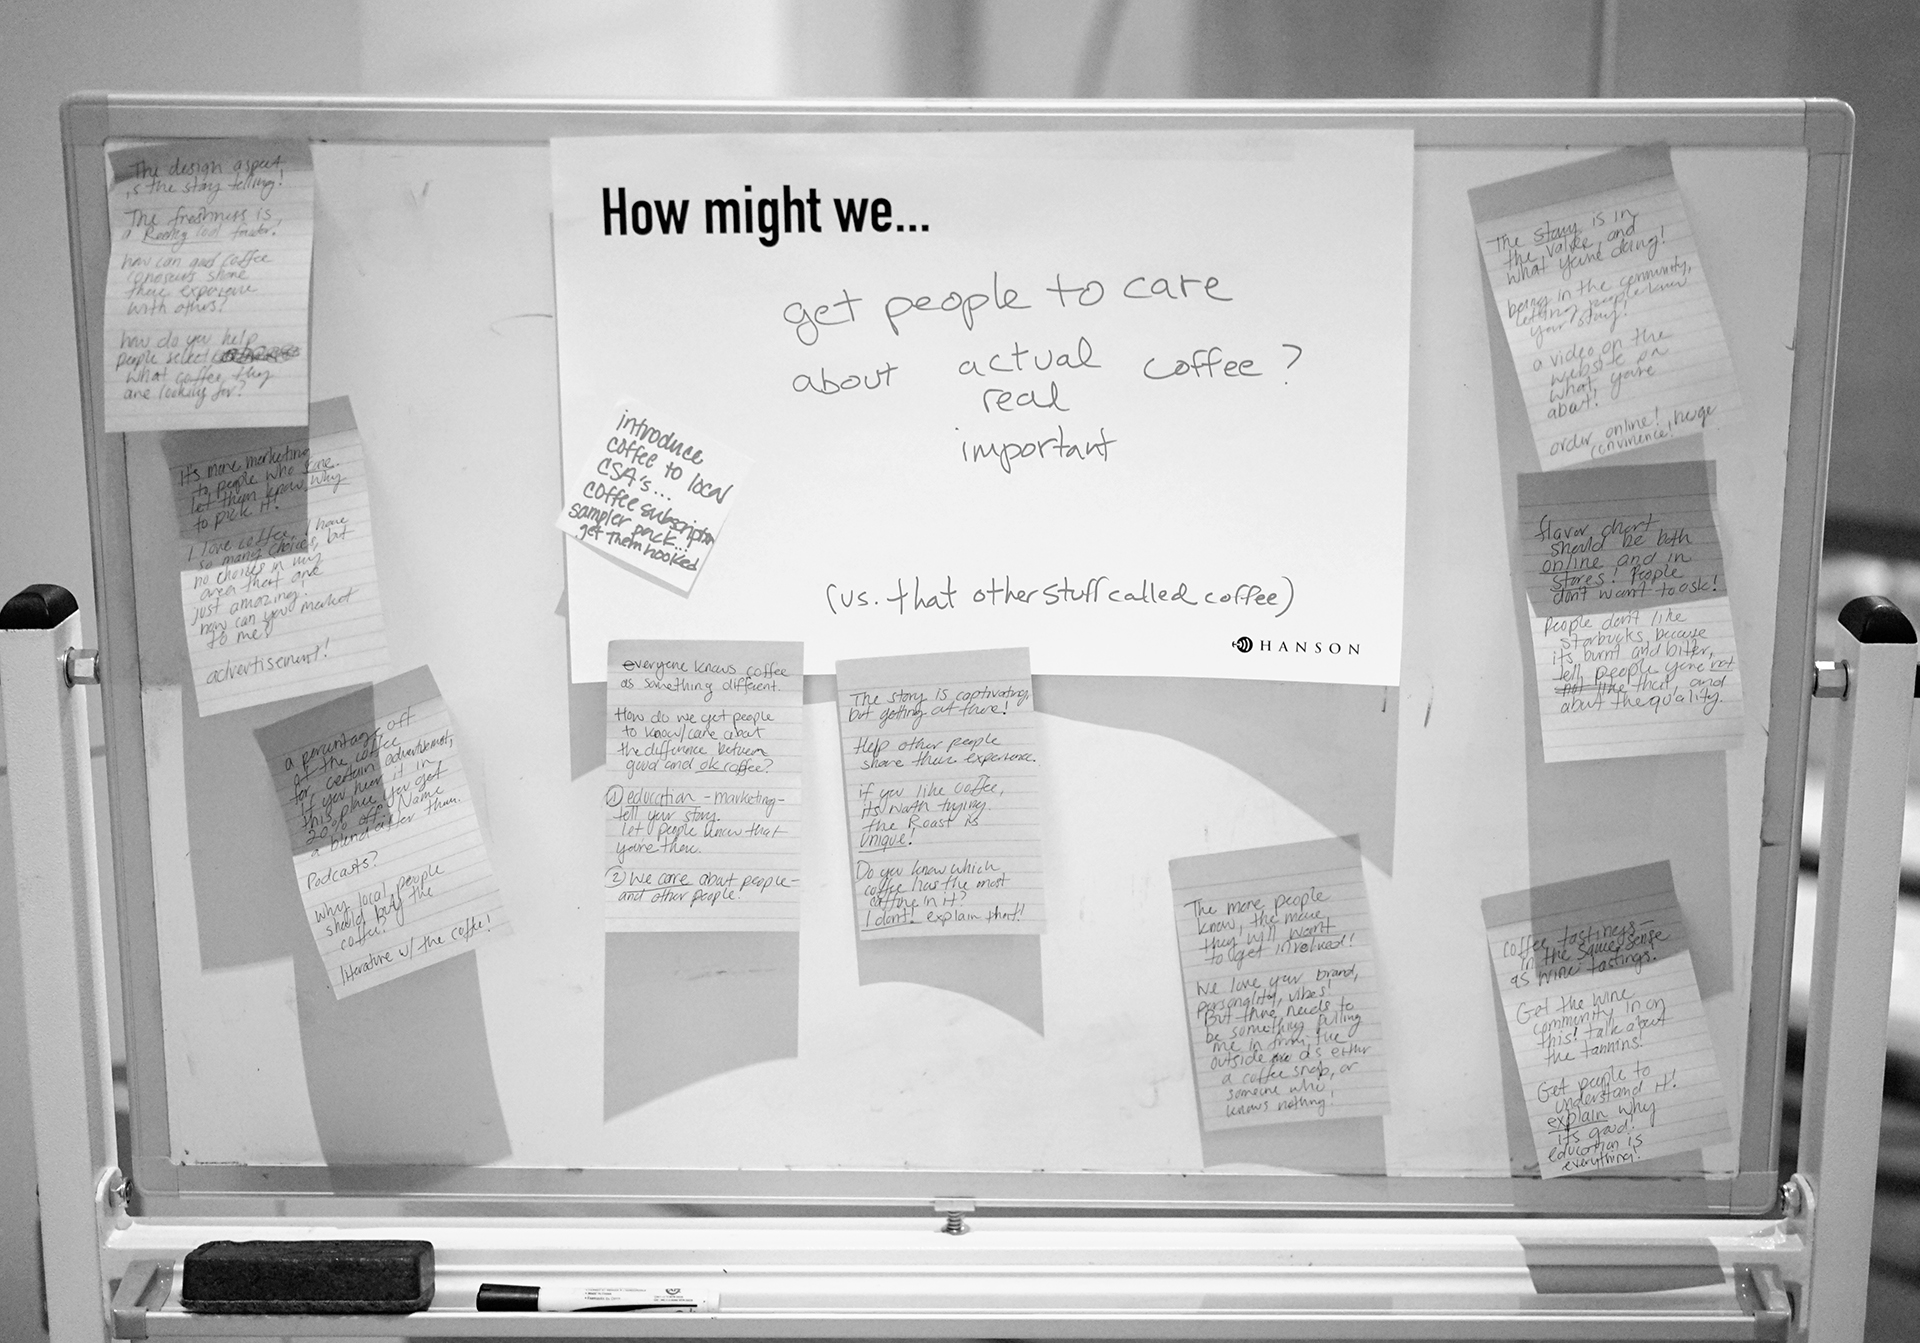 How might we...
get people to care
about actual coffee?
real
important
(vs. that other stuff called coffee)
HANSON
introduce
coffee to local
CSA's...
coffee subscription
sampler pack...
get them hooked
The design aspect
is the story telling!
The freshness is
a Really cool
how can good coffee
share
their experience
with others?
how do you help
people select
what coffee they
are looking for?
it's more marketing
to people who care.
let them know why
to pick it!
I love coffee, I have
so many choices, but
no choices in my
area that are
just amazing!
how can you market
to me?
advertisement!
a percentage off
of the coffee
for certain advertisement,
if you hear it in
this place you get
20% off. Name
a blend after them.
Podcasts?
why local people
should buy the
coffee!
literature w/ the coffee!
everyone knows coffee
as something different.
How do we get people
to know/care about
the difference between
good and ok coffee?
① education - marketing -
tell your story.
let people know that
you're there.
② We care about people -
and other people.
The story is captivating,
but getting out there!
Help other people
share their experience.
if you like coffee,
its worth trying.
the Roast is
Unique!
Do you know which
coffee has the most
caffine in it?
I dont! explain that!
The more people
know, the more
they will want
to get involved!
We love your brand,
personality, vibes!
But there needs to
be something pulling
me in from the
outside as either
a coffee snob, or
someone who
knows nothing!
The story is in
the value and
what you're doing!
being in the community,
letting people know
your story!
a video on the
website on
what you're
about!
order online! huge
convinence!
flavor chart
should be both
online and in
stores! People
don't want to ask!
People don't like
Starbucks because
its burnt and bitter,
tell people you're not
not like that, and
about the quality.
coffee tastings -
in the same sense
as wine tastings.
Get the wine
community in on
this! talk about
the tannins!
Get people to
understand it!
explain why
its good!
education is
everything!